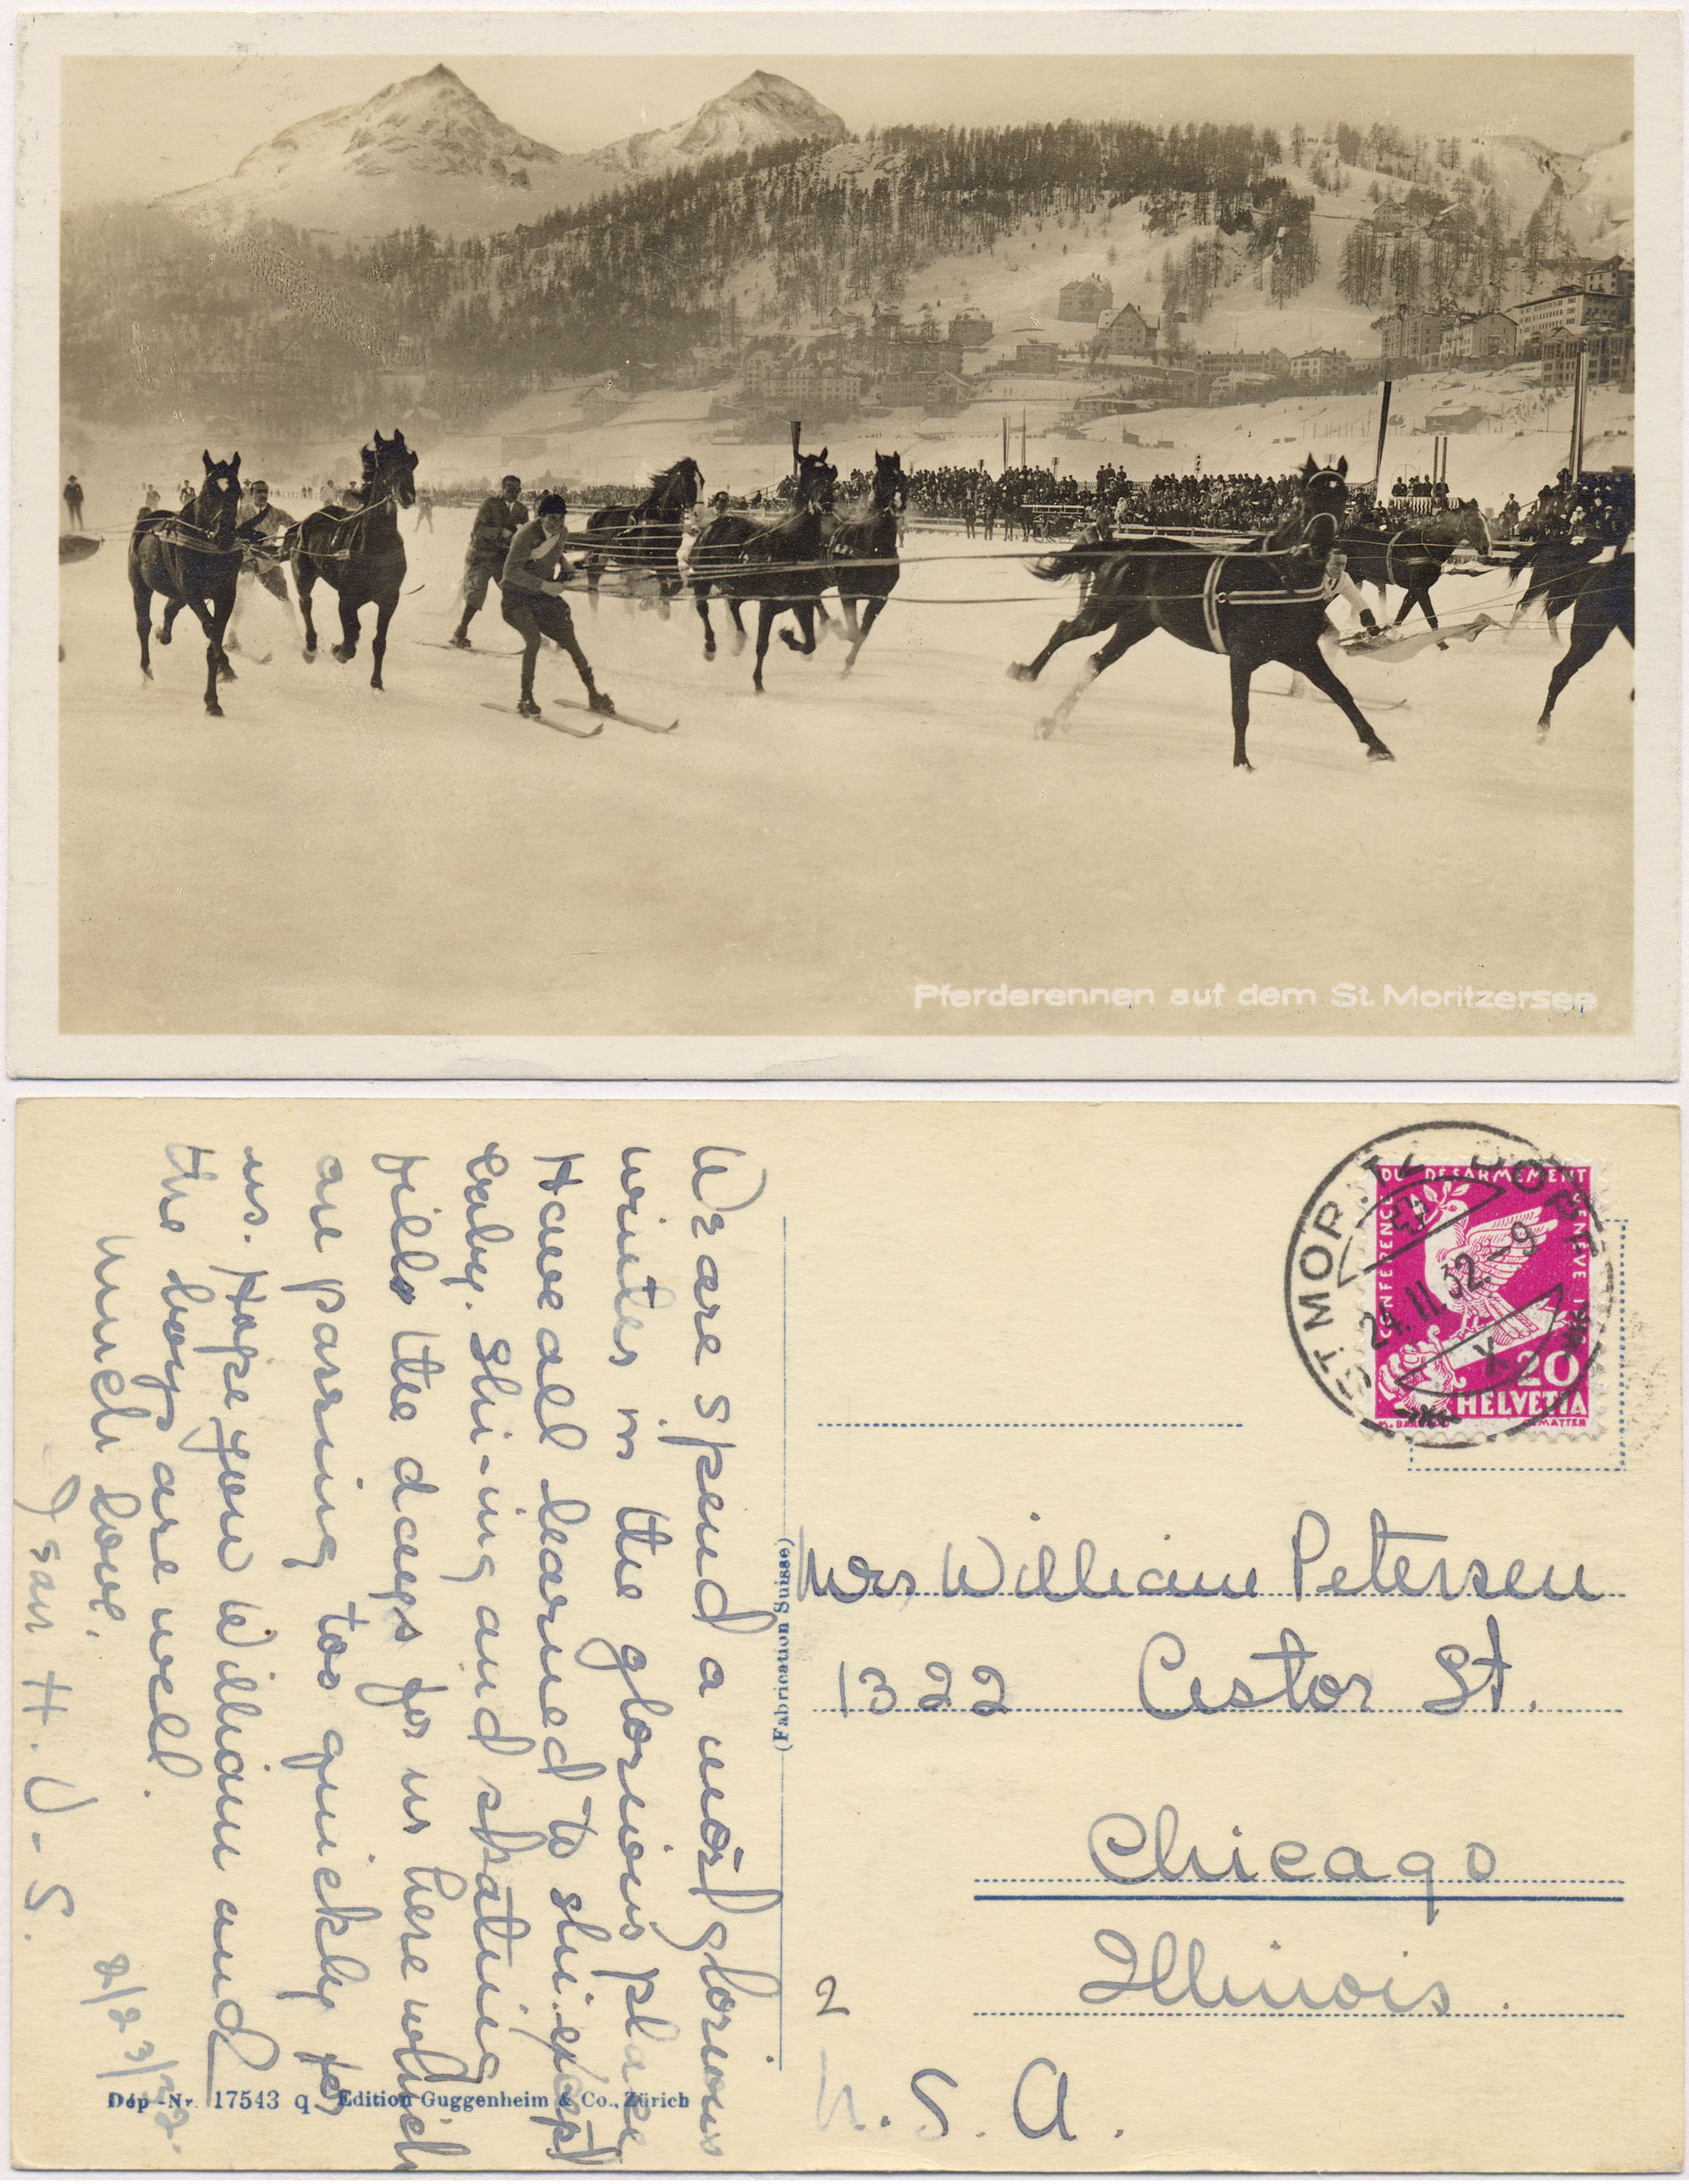 Pferderennen auf dem St. Moritzersee
We are spend a most glorious
winter in the glorious place
Have all learned to ski. except
baby. Ski-ing and skating
fills the days for us here which
are passing too quickly for
us. Hope you William and
the boys are well.
Much love,
H. V-S.
2/23/32.
(Fabrication Suisse)
Dép-Nr. 17543 q Edition Guggenheim & Co., Zürich
ST. MORITZ DORF
24.II.32.-9
X
CONFERENCE DU DESARMEMENT GENEVE
20
HELVETIA
Mrs William Petersen
1322 Astor St.
Chicago
Illinois.
2
U.S.A.